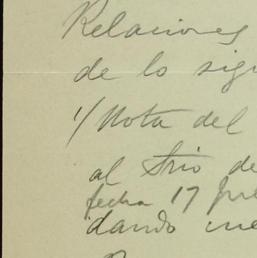 Relaciones
de lo sig
1/ Nota del
al Strio de
fecha 17
dando